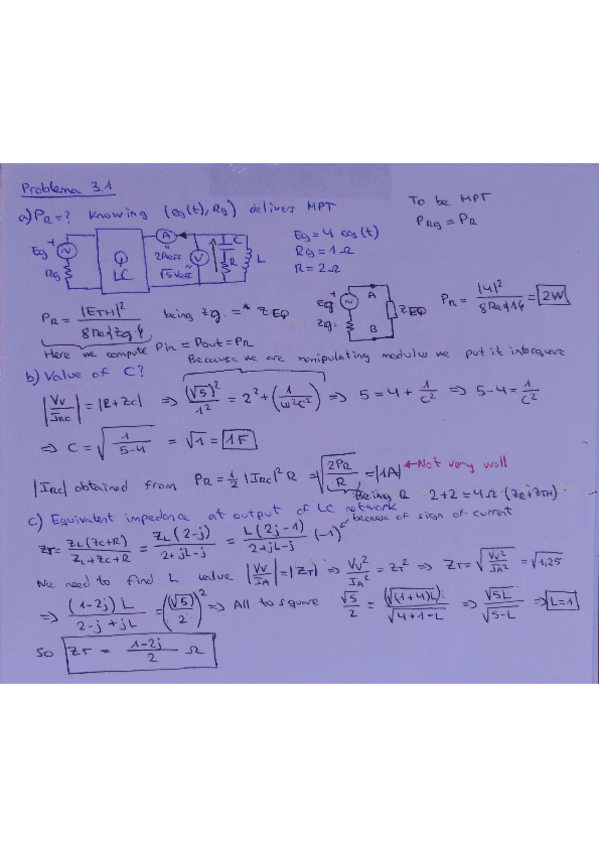 Problema 3.1
To be MPT
a) PR=? knowing (eg(t), Rg) delivers MPT
PRg = PR
Eg = 4 cos(t)
Rg = 1Ω
R = 2Ω
Eg + ~ Rg Q LC A 2Aeff √5Veff V C R L
eg + ~ zg. A B ZEQ
PR = |ETH|² / 8Re{zg} being zg. =* ZEQ
PR = |4|² / 8Re{1} = 2W
Here we compute Pin = Pout = PR
Because we are manipulating modulus we put it into square
b) Value of C?
|Vv/IRC| = |R+ZC| ⇒ (√5)²/1² = 2² + (1/ω²C²) ⇒ 5 = 4 + 1/C² ⇒ 5-4 = 1/C²
⇒ C = √(1/(5-4)) = √1 = 1F
|IRC| obtained from PR = ½ |IRC|² R ⇒ √(2PR/R) = |1A| ← Not very well
Being R 2+2 = 4Ω (ZC+ZTH).
c) Equivalent impedance at output of LC network
because of sign of current
ZT = ZL(ZC+R)/(ZL+ZC+R) = ZL(2-j)/(2+jL-j) = L(2j-1)/(2+jL-j) (-1)
We need to find L value |Vv/IA| = |ZT| ⇒ Vv²/IA² = ZT² ⇒ ZT = √(Vv²/IA²) = √1,25
⇒ (1-2j)L/(2-j+jL) = ((√5)/2)² ⇒ All to square √5/2 = (√(1+4)L)/√(4+1-L) ⇒ √5L/√(5-L) ⇒ L=1
So ZT = (1-2j)/2 Ω